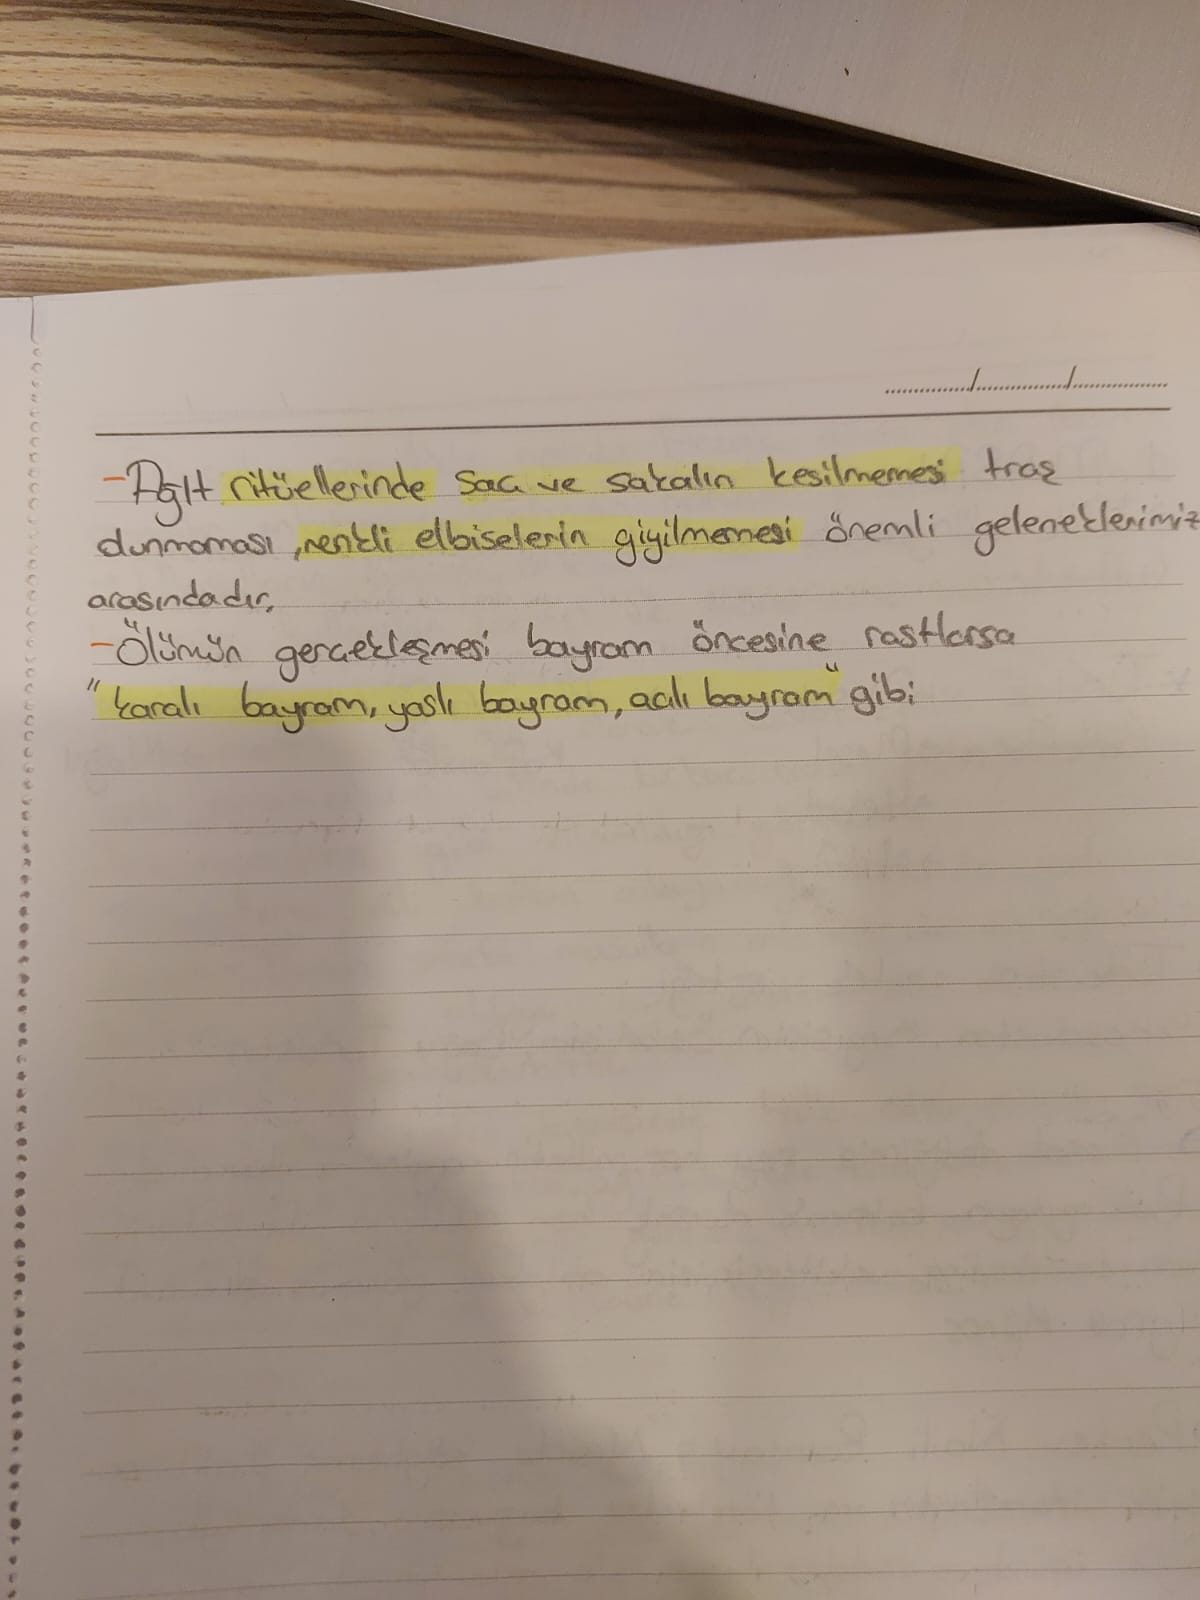 ............../............../..............
-Ağıt ritüellerinde sac ve sakalın kesilmemesi traş
olunmaması ,renkli elbiselerin giyilmemesi önemli geleneklerimiz
arasındadır.
-Ölümün gercekleşmesi bayram öncesine rastlarsa
"karalı bayram, yaslı bayram, acılı bayram" gibi